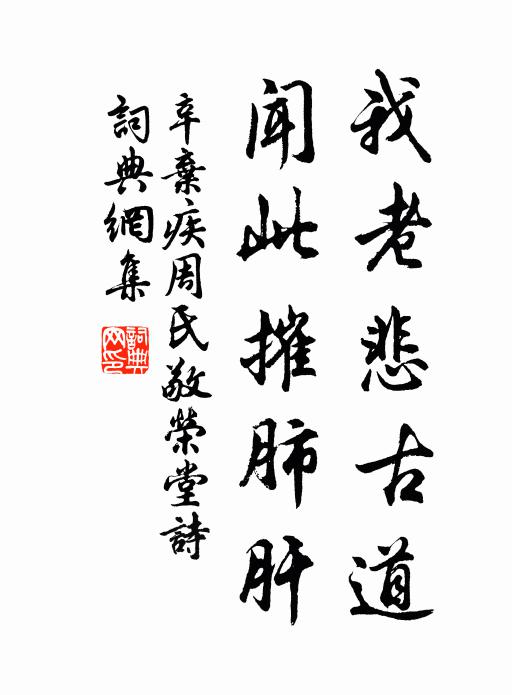 我老悲古道
聞此摧肺肝
辛棄疾周氏敬榮堂詩
詞典網集
詞典網印